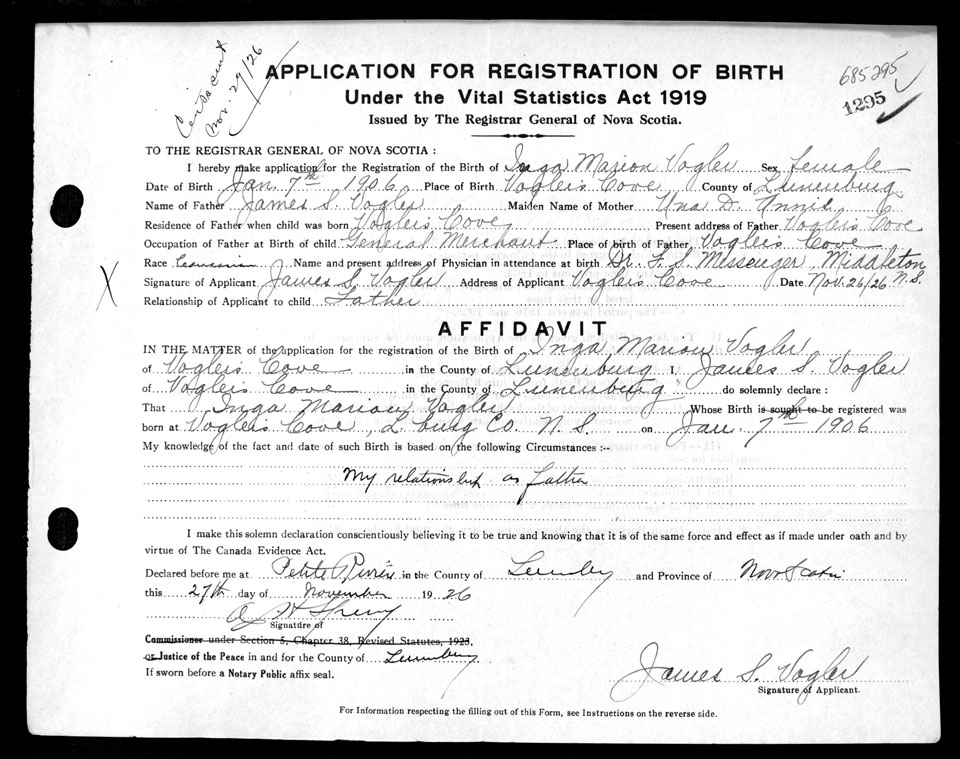 Cert. sent
Nov. 29/26
685295
1295
APPLICATION FOR REGISTRATION OF BIRTH
Under the Vital Statistics Act 1919
Issued by The Registrar General of Nova Scotia.
TO THE REGISTRAR GENERAL OF NOVA SCOTIA :
I hereby make application for the Registration of the Birth of Inga Marion Vogler Sex female
Date of Birth Jan. 7th 1906 Place of Birth Vogler's Cove County of Lunenburg
Name of Father James S. Vogler Maiden Name of Mother Una D. Annie
Residence of Father when child was born Vogler's Cove Present address of Father Vogler's Cove
Occupation of Father at Birth of child General Merchant Place of birth of Father Vogler's Cove
Race Caucasian Name and present address of Physician in attendance at birth Dr. F. S. Messenger, Middleton N.S.
X Signature of Applicant James S. Vogler Address of Applicant Vogler's Cove Date Nov. 26/26
Relationship of Applicant to child Father
AFFIDAVIT
IN THE MATTER of the application for the registration of the Birth of Inga Marion Vogler
of Vogler's Cove in the County of Lunenburg I, James S. Vogler
of Vogler's Cove in the County of Lunenburg do solemnly declare :
That Inga Marion Vogler Whose Birth is sought to be registered was
born at Vogler's Cove, L'burg Co. N. S. on Jan. 7th 1906
My knowledge of the fact and date of such Birth is based on the following Circumstances :-
My relationship as father
I make this solemn declaration conscientiously believing it to be true and knowing that it is of the same force and effect as if made under oath and by
virtue of The Canada Evidence Act.
Declared before me at Petite Riviere in the County of Lunenburg and Province of Nova Scotia
this 27th day of November 1926
Signature of
Commissioner under Section 5, Chapter 38, Revised Statutes, 1923,
or Justice of the Peace in and for the County of Lunenburg
If sworn before a Notary Public affix seal.
James S. Vogler
Signature of Applicant.
For Information respecting the filling out of this Form, see Instructions on the reverse side.